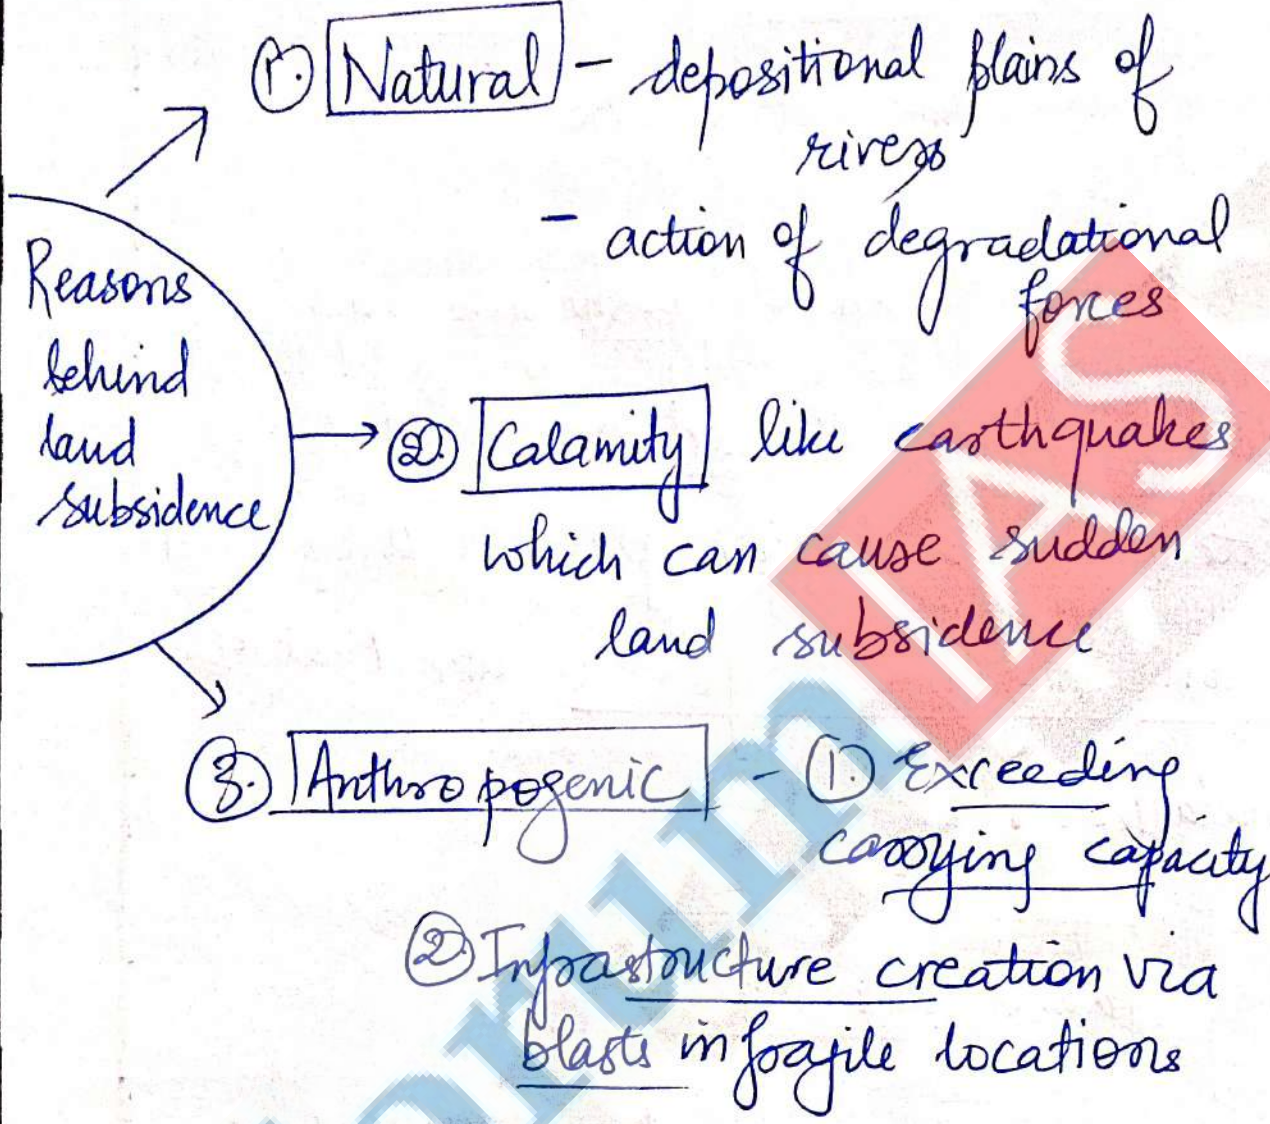 Reasons
behind
land
subsidence
1. Natural - depositional plains of
rivers
- action of degradational
forces
2. Calamity like earthquakes
which can cause sudden
land subsidence
3. Anthropogenic - 1. Exceeding
carrying capacity
2. Infrastructure creation via
blasts in fragile locations
orum IAS